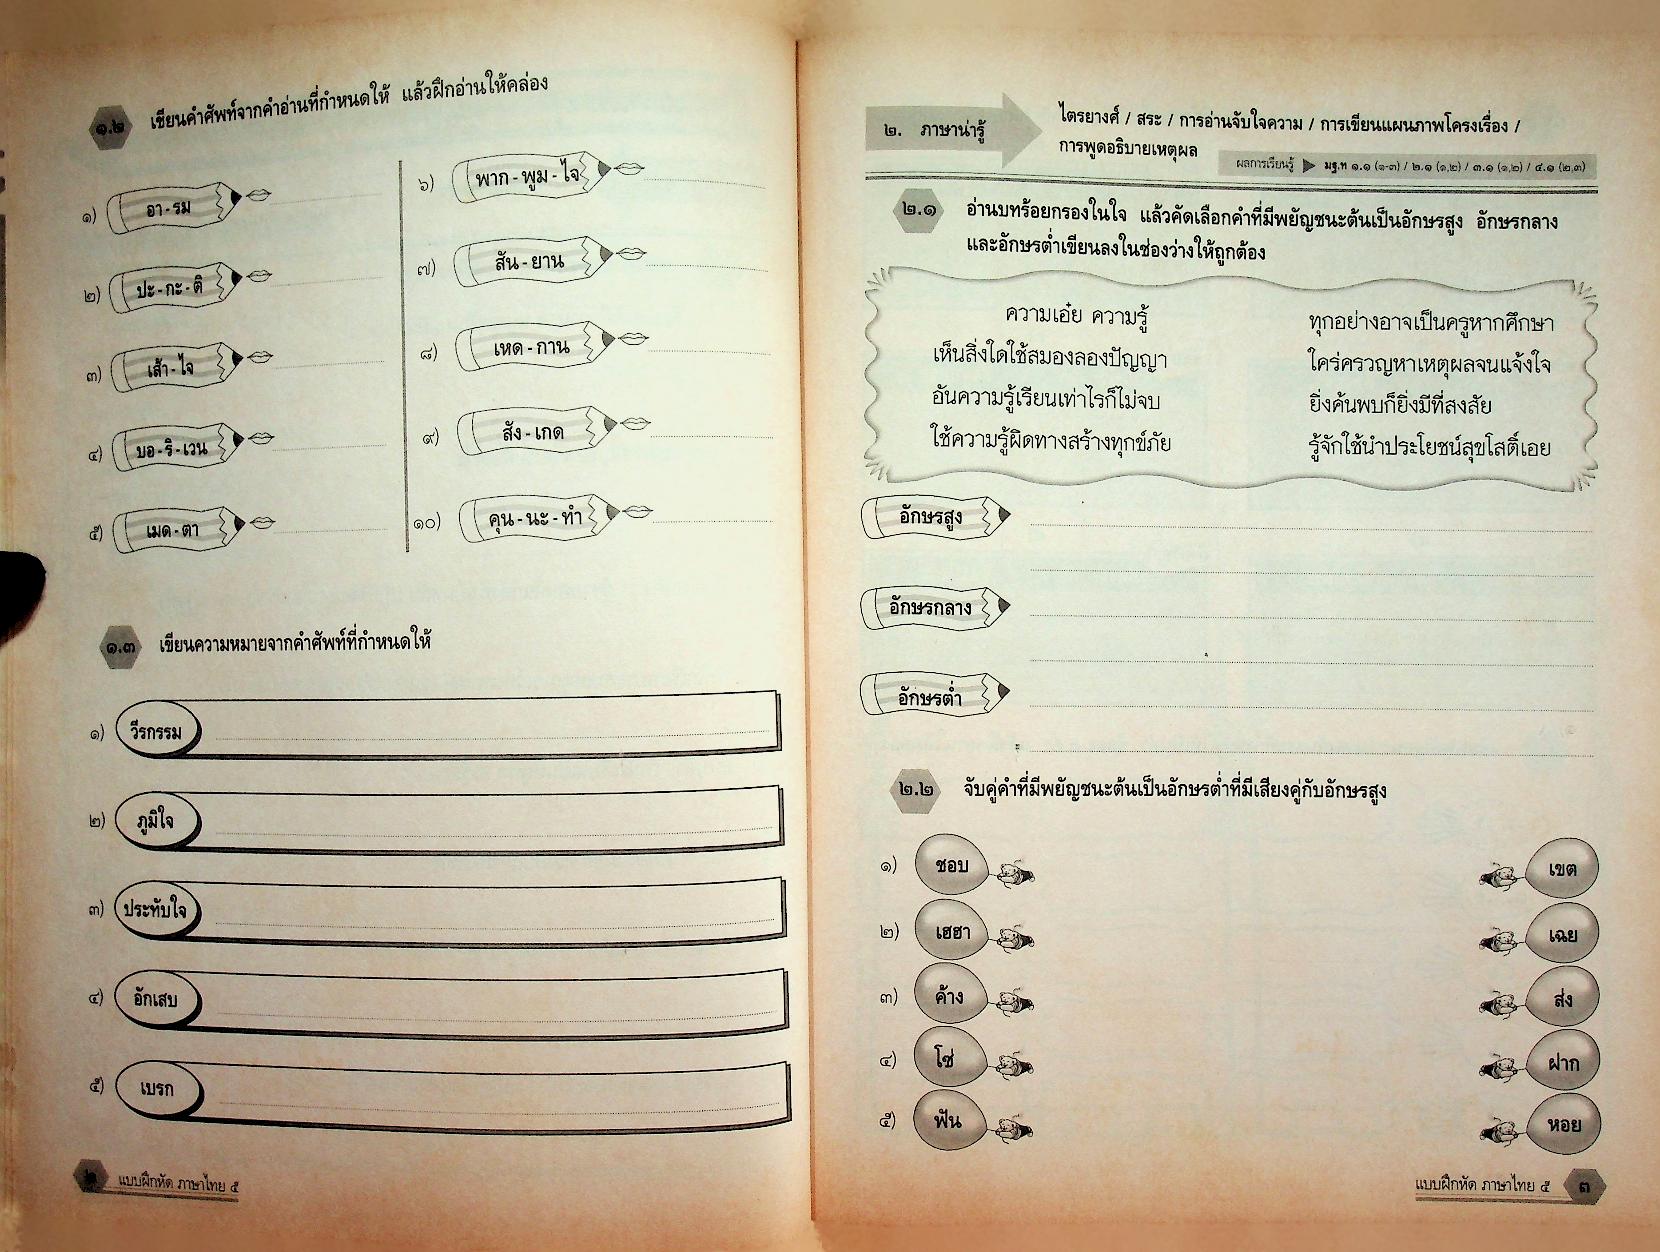 ๑.๒ เขียนคำศัพท์จากคำอ่านที่กำหนดให้ แล้วฝึกอ่านให้คล่อง
๑) อา - รม
๒) ปะ - กะ - ติ
๓) เส้า - ไจ
๔) บอ - ริ - เวน
๕) เมด - ตา
๖) พาก - พูม - ไจ
๗) สัน - ยาน
๘) เหด - กาน
๙) สัง - เกด
๑๐) คุน - นะ - ทำ
๑.๓ เขียนความหมายจากคำศัพท์ที่กำหนดให้
๑) วีรกรรม
๒) ภูมิใจ
๓) ประทับใจ
๔) อักเสบ
๕) เบรก
๒ แบบฝึกหัด ภาษาไทย ๕
๒. ภาษาน่ารู้
ไตรยางศ์ / สระ / การอ่านจับใจความ / การเขียนแผนภาพโครงเรื่อง /
การพูดอธิบายเหตุผล
ผลการเรียนรู้ ▶ มฐ.ท ๑.๑ (๑-๓) / ๒.๑ (๑,๒) / ๓.๑ (๑,๒) / ๔.๑ (๒,๓)
๒.๑ อ่านบทร้อยกรองในใจ แล้วคัดเลือกคำที่มีพยัญชนะต้นเป็นอักษรสูง อักษรกลาง
และอักษรต่ำเขียนลงในช่องว่างให้ถูกต้อง
ความเอ๋ย ความรู้ ทุกอย่างอาจเป็นครูหากศึกษา
เห็นสิ่งใดใช้สมองลองปัญญา ใคร่ครวญหาเหตุผลจนแจ้งใจ
อันความรู้เรียนเท่าไรก็ไม่จบ ยิ่งค้นพบก็ยิ่งมีที่สงสัย
ใช้ความรู้ผิดทางสร้างทุกข์ภัย รู้จักใช้นำประโยชน์สุขโสตถิ์เอย
อักษรสูง
อักษรกลาง
อักษรต่ำ
๒.๒ จับคู่คำที่มีพยัญชนะต้นเป็นอักษรต่ำที่มีเสียงคู่กับอักษรสูง
๑) ชอบ เขต
๒) เฮฮา เฉย
๓) ค้าง ส่ง
๔) โซ่ ฝาก
๕) ฟัน หอย
แบบฝึกหัด ภาษาไทย ๕ ๓